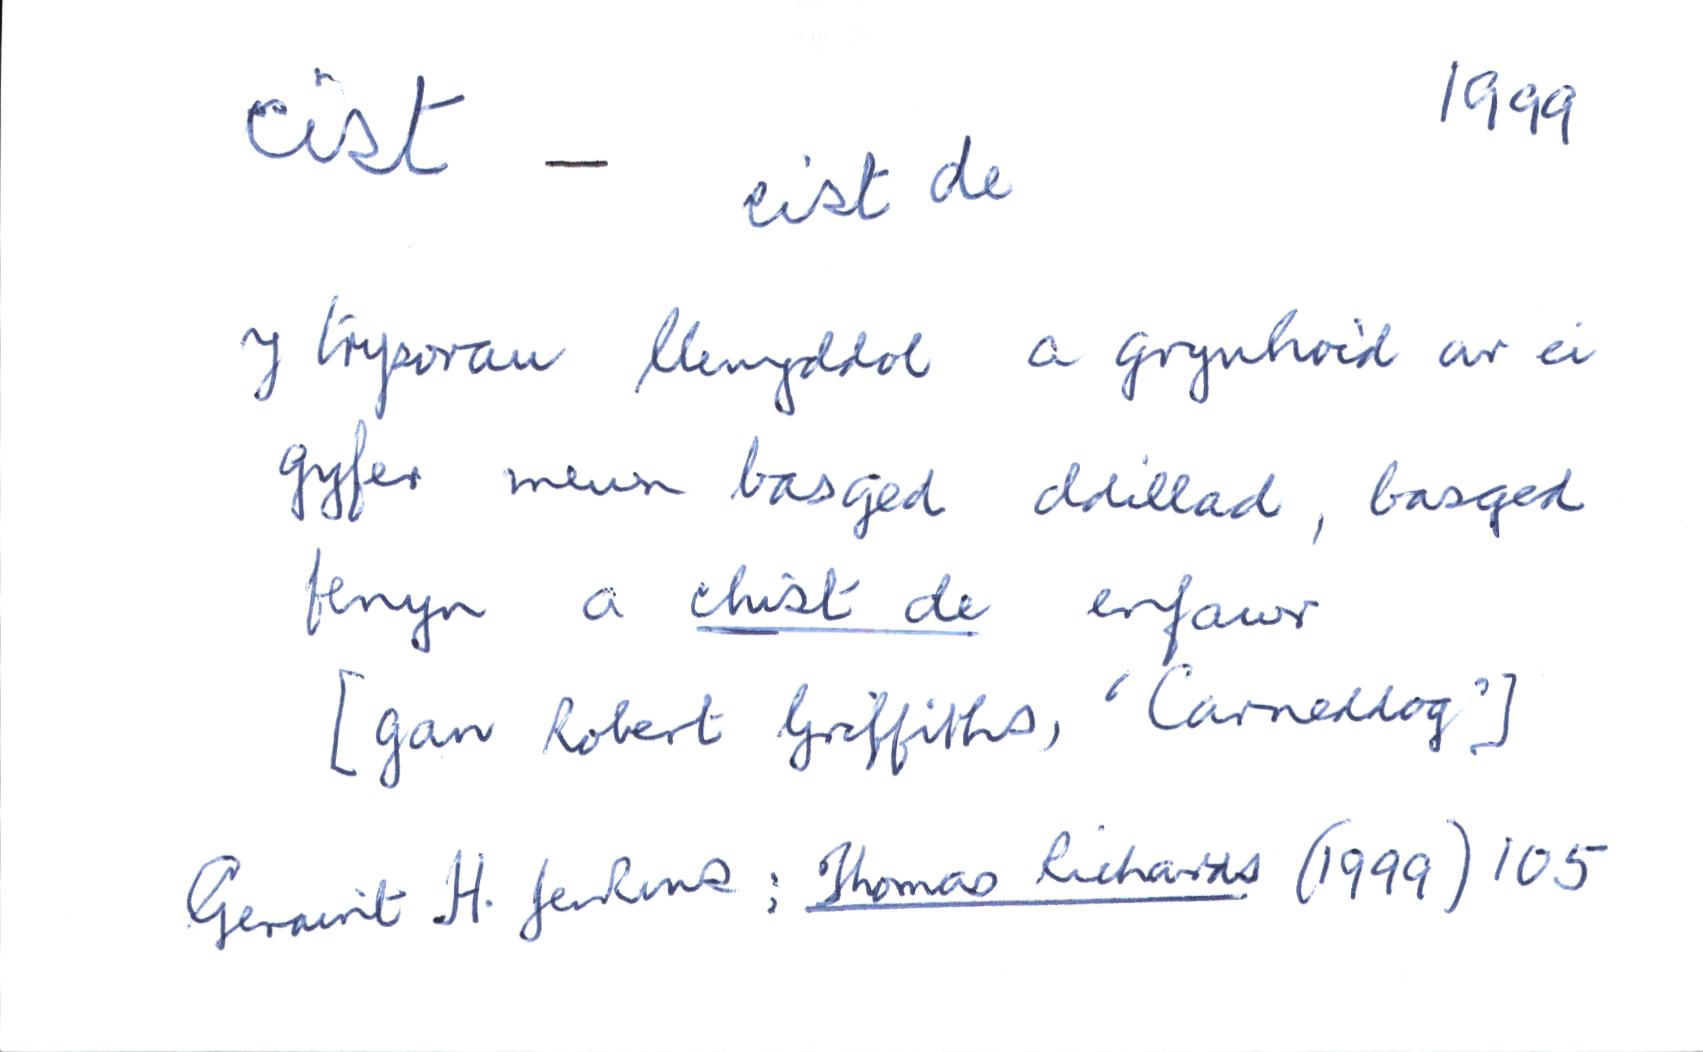 cist – cist de 1999
y trysorau llenyddol a grynhoid ar ei
gyfer mewn basged ddillad, basged
fenyn a chist de enfawr
[gan Robert Griffiths, 'Carneddog']
Geraint H. Jenkins; Thomas Richards (1999) 105